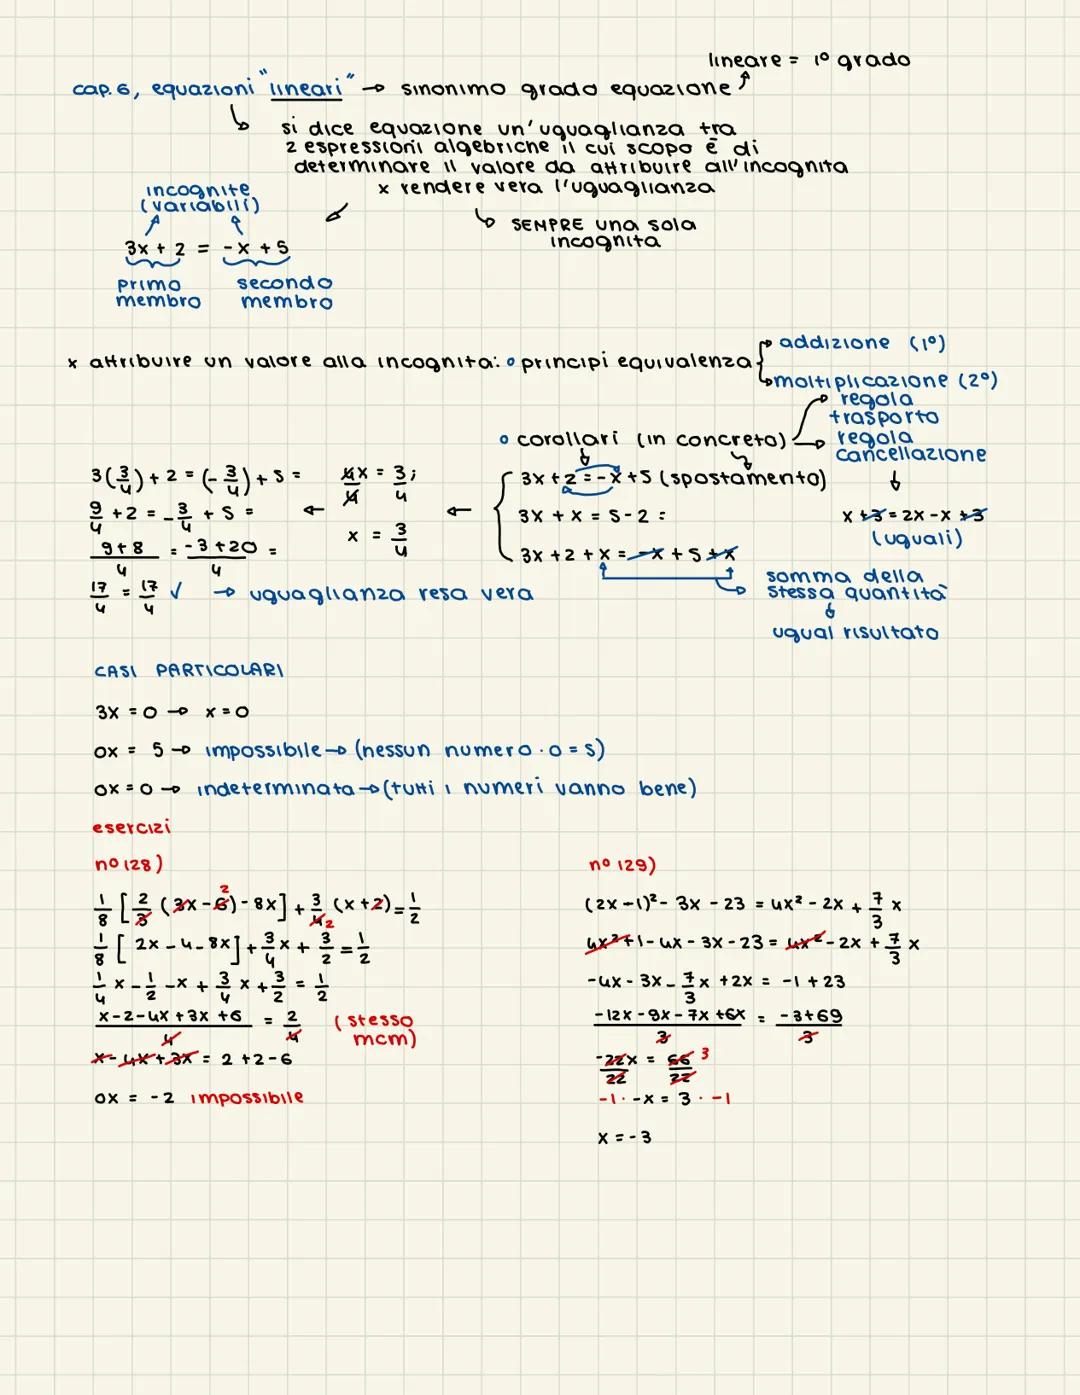 lineare = 1º grado
cap. 6, equazioni "lineari" → sinonimo grado equazione
si dice equazione un'uguaglianza tra
2 espressioni algebriche il cui scopo è di
determinare il valore da attribuire all'incognita
x rendere vera l'uguaglianza
incognite
(variabili)
SEMPRE una sola
incognita
3x + 2 = -x + 5
primo secondo
membro membro
x attribuire un valore alla incognita: • principi equivalenza
addizione (1º)
moltiplicazione (2º)
• corollari (in concreto)
regola
trasporto
regola
cancellazione
3(3/4) + 2 = (-3/4) + 5 =
9/4 + 2 = -3/4 + 5 =
9+8/4 = -3+20/4 =
17/4 = 17/4 ✓ → uguaglianza resa vera
4x/4 = 3/4;
x = 3/4
3x + 2 = -x + 5 (spostamento)
3x + x = 5 - 2 =
3x + 2 + x = -x + 5 + x
x + 3 = 2x - x + 3
(uguali)
somma della
stessa quantità
ugual risultato
CASI PARTICOLARI
3x = 0 → x = 0
0x = 5 → impossibile → (nessun numero · 0 = 5)
0x = 0 → indeterminata → (tutti i numeri vanno bene)
esercizi
nº 128)
1/8 [2/3 (3x - 6) - 8x] + 3/4 (x + 2) = 1/2
1/8 [2x - 4 - 8x] + 3/4 x + 3/2 = 1/2
1/4 x - 1/2 - x + 3/4 x + 3/2 = 1/2
x - 2 - 4x + 3x + 6/4 = 2/4 (stesso
mcm)
x - 4x + 3x = 2 + 2 - 6
0x = -2 impossibile
nº 129)
(2x - 1)² - 3x - 23 = 4x² - 2x + 7/3 x
4x² + 1 - 4x - 3x - 23 = 4x² - 2x + 7/3 x
-4x - 3x - 7/3 x + 2x = -1 + 23
-12x - 9x - 7x + 6x/3 = -3 + 69/3
-22x/22 = 66/22 3
-1 · -x = 3 · -1
x = -3